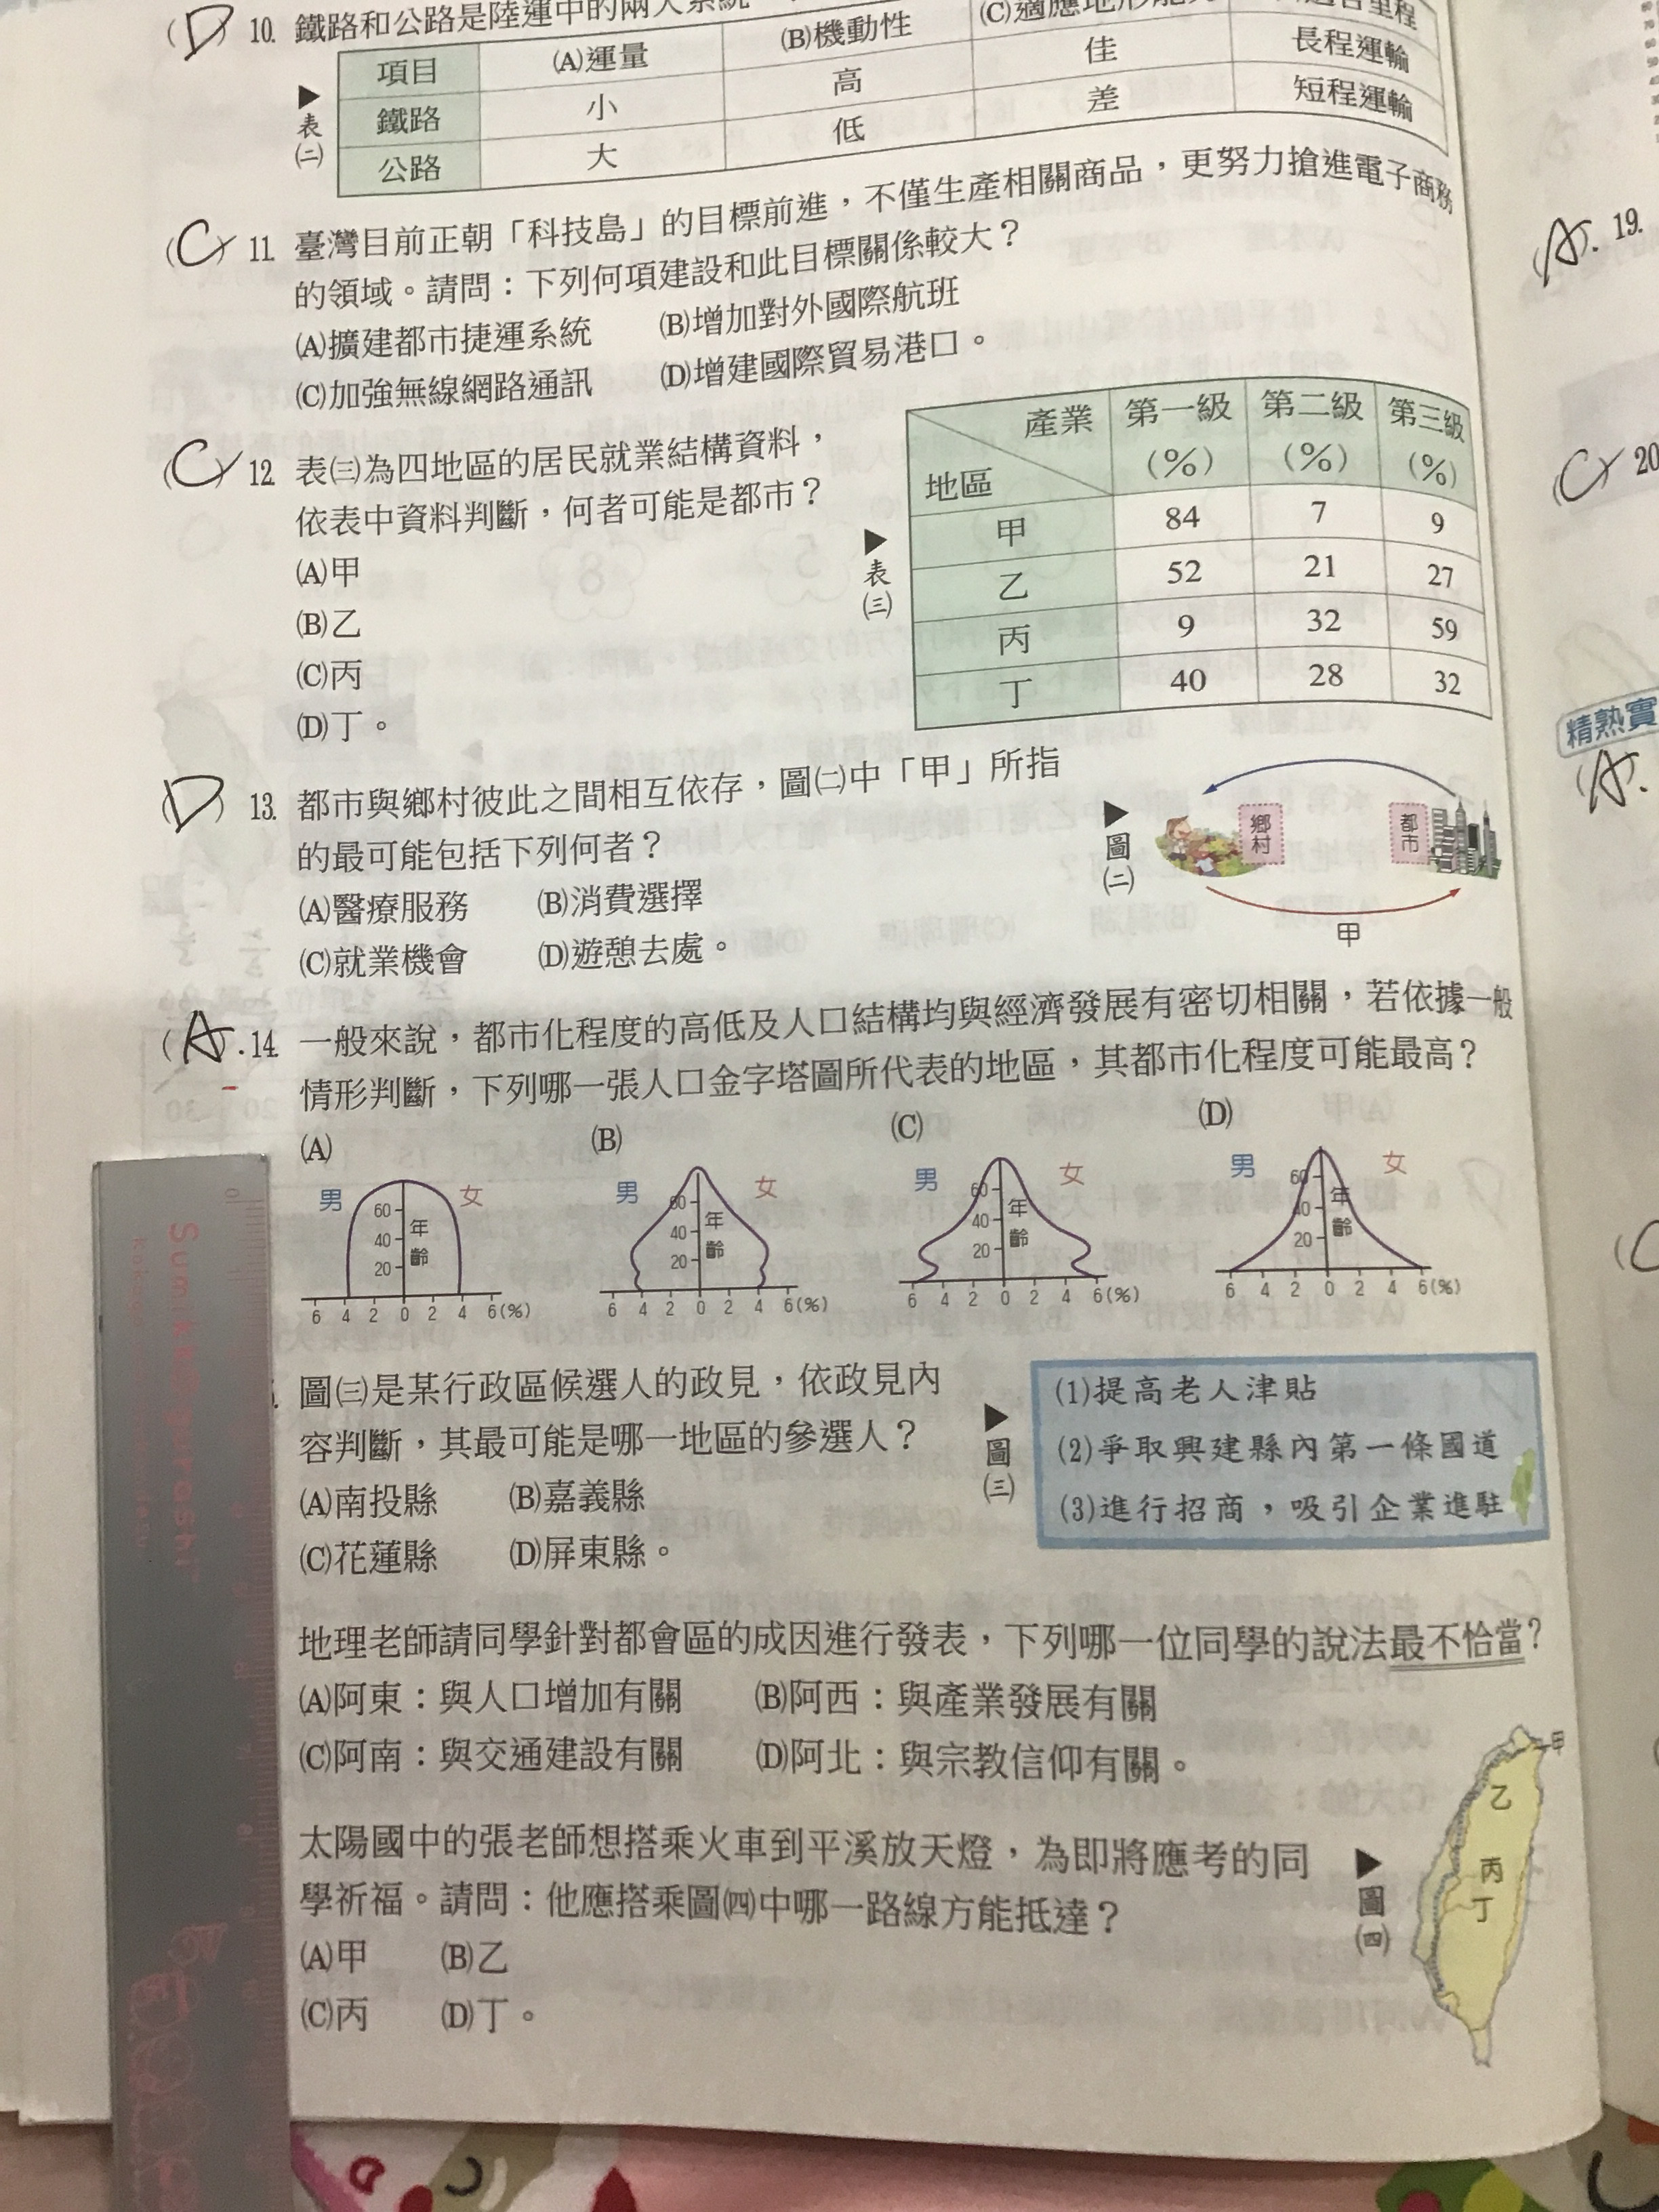 (D) 10. 鐵路和公路是陸運中的兩大系統
項目 (A)運量 (B)機動性
鐵路 小 高 佳 長程運輸
公路 大 低 差 短程運輸
▶表(二)
(C) 11. 臺灣目前正朝「科技島」的目標前進，不僅生產相關商品，更努力搶進電子商務
的領域。請問：下列何項建設和此目標關係較大？
(A)擴建都市捷運系統 (B)增加對外國際航班
(C)加強無線網路通訊 (D)增建國際貿易港口。
(C) 12. 表(三)為四地區的居民就業結構資料，
依表中資料判斷，何者可能是都市？
(A)甲
(B)乙
(C)丙
(D)丁。
▶表(三)
產業 地區 第一級(%) 第二級(%) 第三級(%)
甲 84 7 9
乙 52 21 27
丙 9 32 59
丁 40 28 32
(D) 13. 都市與鄉村彼此之間相互依存，圖(二)中「甲」所指
的最可能包括下列何者？
(A)醫療服務 (B)消費選擇
(C)就業機會 (D)遊憩去處。
▶圖(二)
鄉村 都市
甲
(A) 14. 一般來說，都市化程度的高低及人口結構均與經濟發展有密切相關，若依據一般
情形判斷，下列哪一張人口金字塔圖所代表的地區，其都市化程度可能最高？
(A) (B) (C) (D)
男 女 男 女 男 女 男 女
60 年齡 60 年齡 60 年齡 60 年齡
40 40 40 40
20 20 20 20
6 4 2 0 2 4 6(%) 6 4 2 0 2 4 6(%) 6 4 2 0 2 4 6(%) 6 4 2 0 2 4 6(%)
圖(三)是某行政區候選人的政見，依政見內
容判斷，其最可能是哪一地區的參選人？
(A)南投縣 (B)嘉義縣
(C)花蓮縣 (D)屏東縣。
▶圖(三)
(1)提高老人津貼
(2)爭取興建縣內第一條國道
(3)進行招商，吸引企業進駐
地理老師請同學針對都會區的成因進行發表，下列哪一位同學的說法最不恰當？
(A)阿東：與人口增加有關 (B)阿西：與產業發展有關
(C)阿南：與交通建設有關 (D)阿北：與宗教信仰有關。
太陽國中的張老師想搭乘火車到平溪放天燈，為即將應考的同
學祈福。請問：他應搭乘圖(四)中哪一路線方能抵達？
(A)甲 (B)乙
(C)丙 (D)丁。
▶圖(四)
甲
乙
丙
丁
(A) 19.
(C) 20
精熟實
(A)
Sumikkogurashi